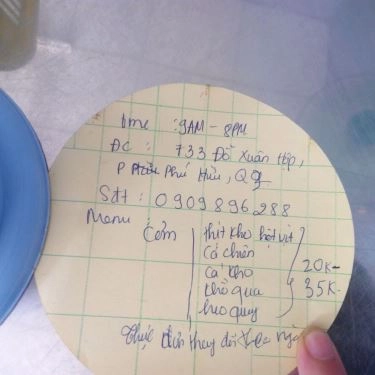 time : 9AM - 8PM
ĐC : 733 Đỗ Xuân Hợp,
P Phú Hữu, Q9
Sđt : 0909896288
Menu Cơm thịt kho hột vịt
Cá chiên
Cá kho 20K-
khổ qua 35K
heo quay
Thực đơn thay đổi theo ngày